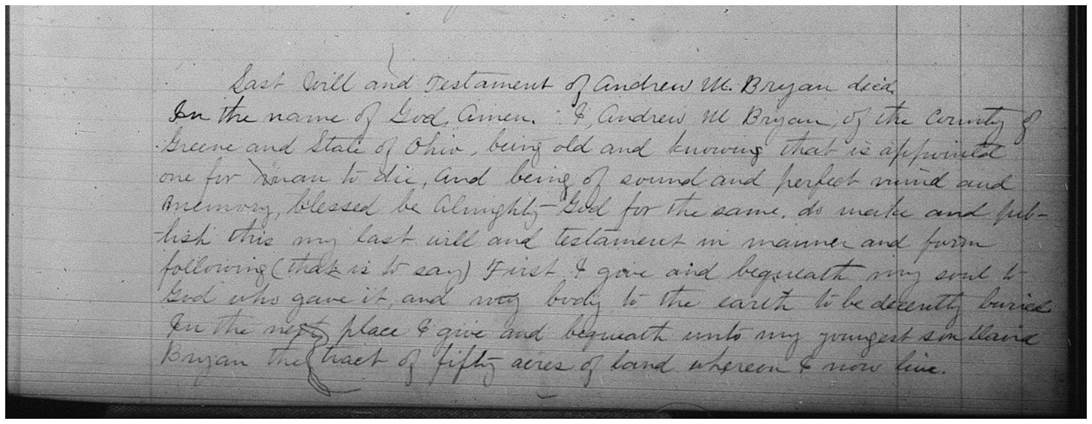 Last Will and Testament of Andrew M. Bryan decd.
In the name of God, Amen. I, Andrew M Bryan, of the County of
Greene and State of Ohio, being old and knowing that is appointed
one for man to die, and being of sound and perfect mind and
memory, blessed be Almighty God for the same, do make and pub-
-lish this my last will and testament in manner and form
following (that is to say) First I give and bequeath my soul to
God who gave it, and my body to the earth to be decently buried
In the next place I give and bequeath unto my youngest son David
Bryan the tract of fifty acres of land whereon I now live.